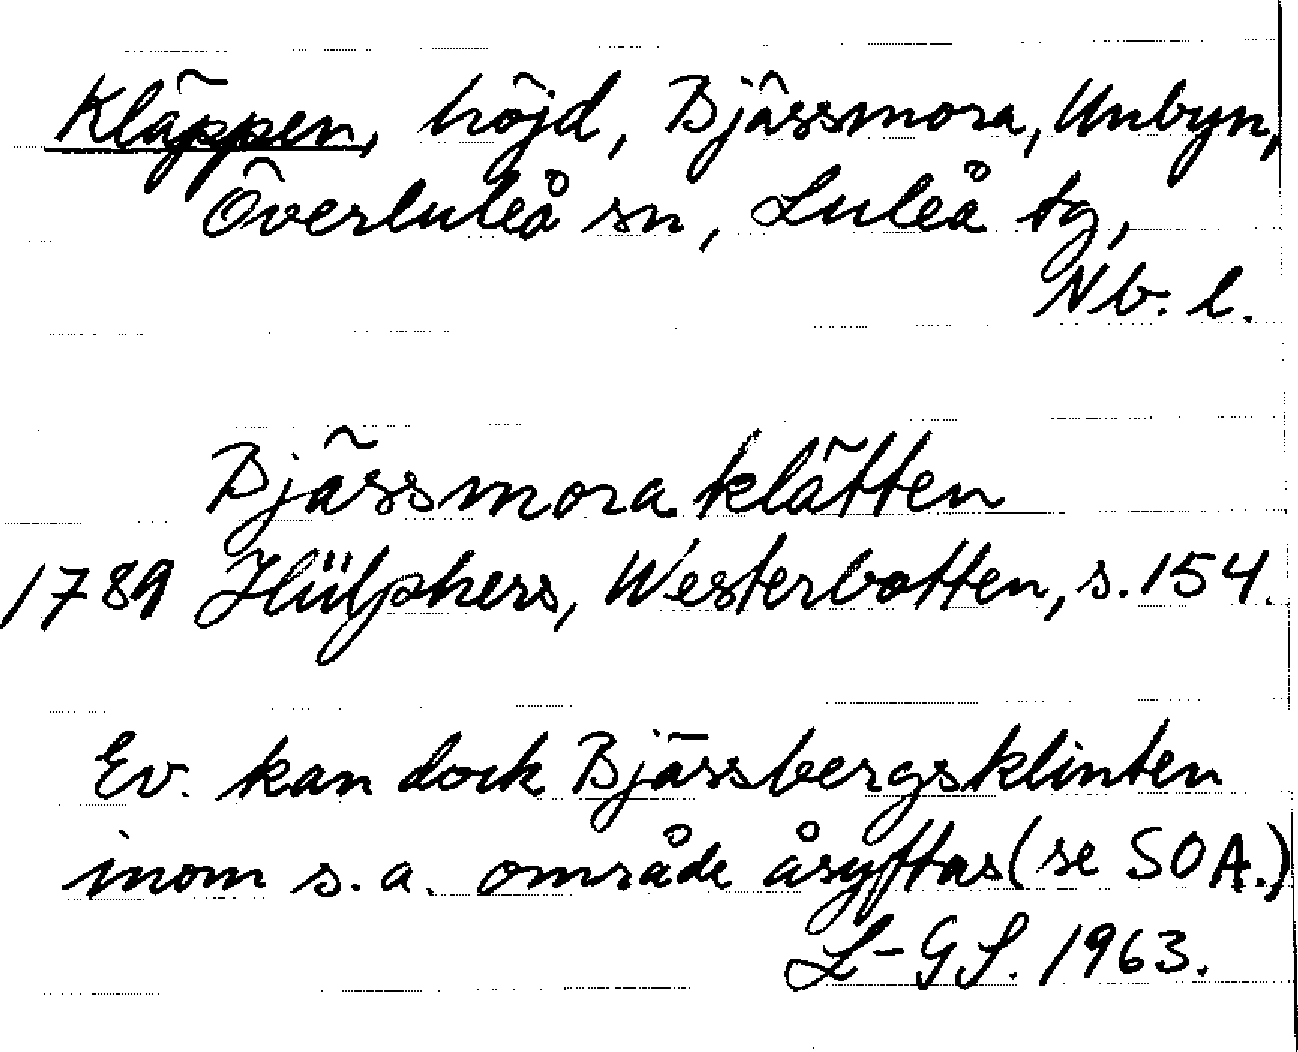 Kläppen, höjd, Bjässmora, Unbyn,
Överluleå sn, Luleå tg,
Nb. l.
Bjässmora klätten
1789 Hülphers, Westerbotten, s. 154.
Ev. kan dock Bjässbergsklinten
inom s. a. område åsyftas (se SOA.)
L-GS. 1963.